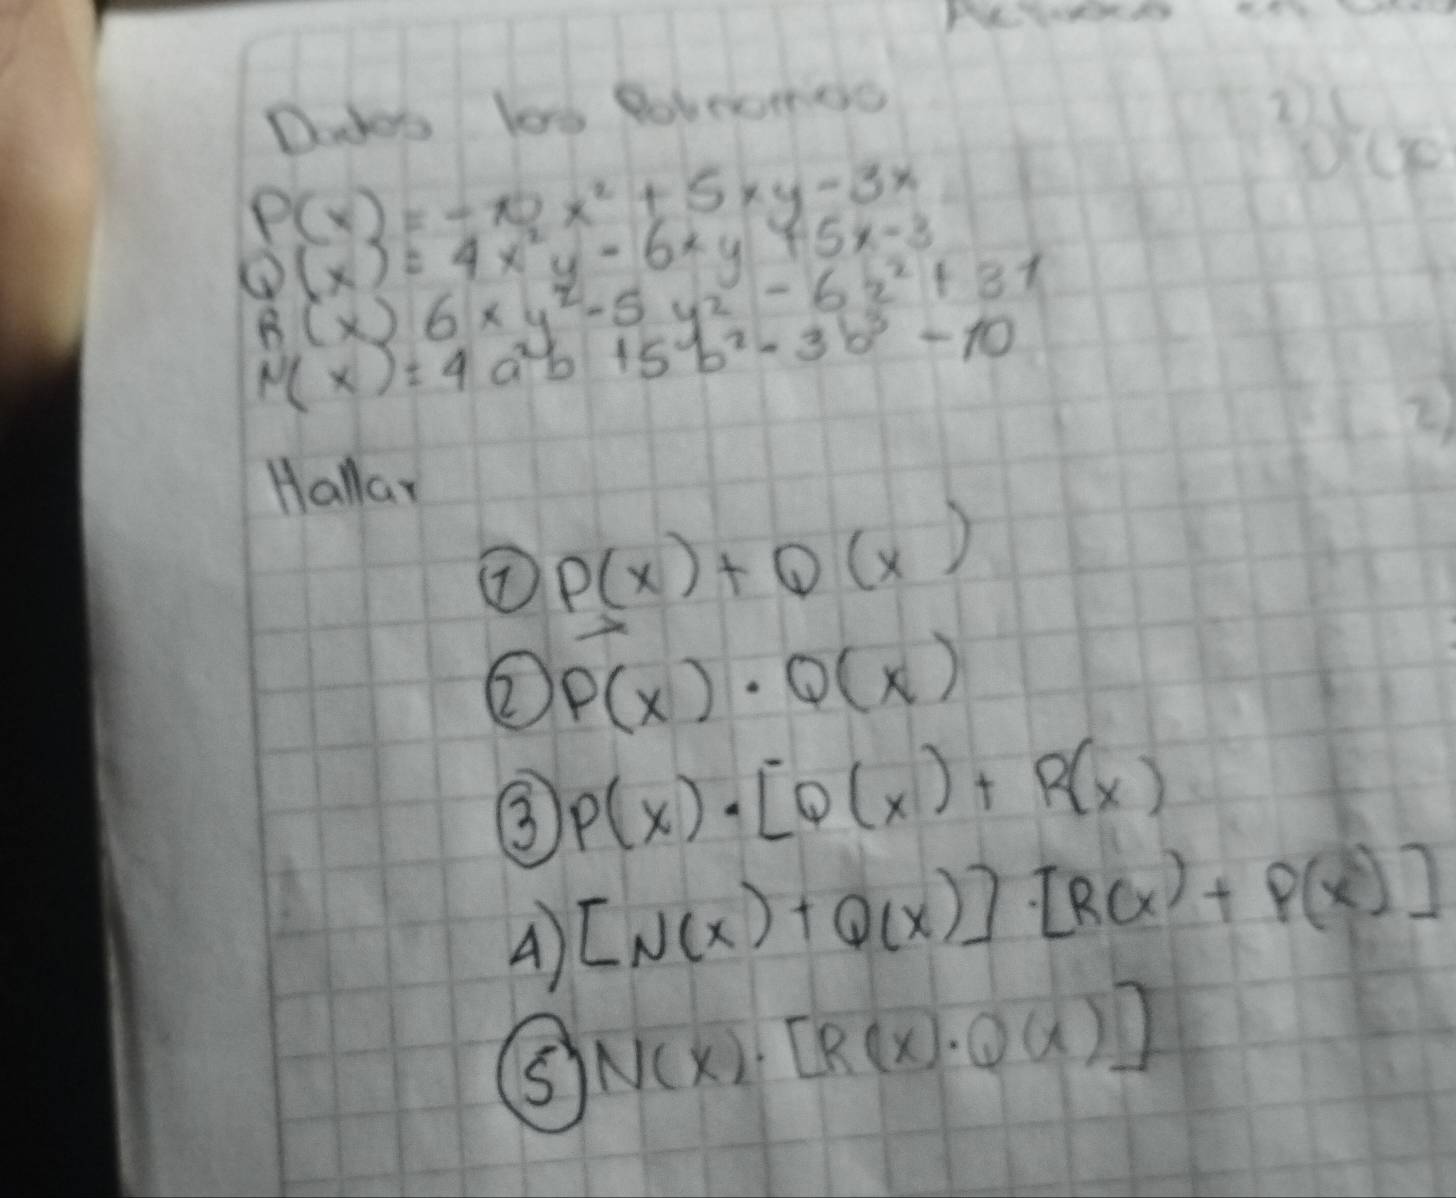 Dados los Polinomios
P(x) = -10x² + 5xy - 3x
Q(x) = 4x²y - 6xy + 5x - 3
R(x) 6xy² - 5y² - 6z² + 31
N(x) = 4a²b + 5b² - 3b³ - 10
Hallar
① P(x) + Q(x)
② P(x) · Q(x)
③ P(x) · [Q(x) + R(x)
4) [N(x) + Q(x)] · [R(x) + P(x)]
⑤ N(x) · [R(x) · Q(x)]